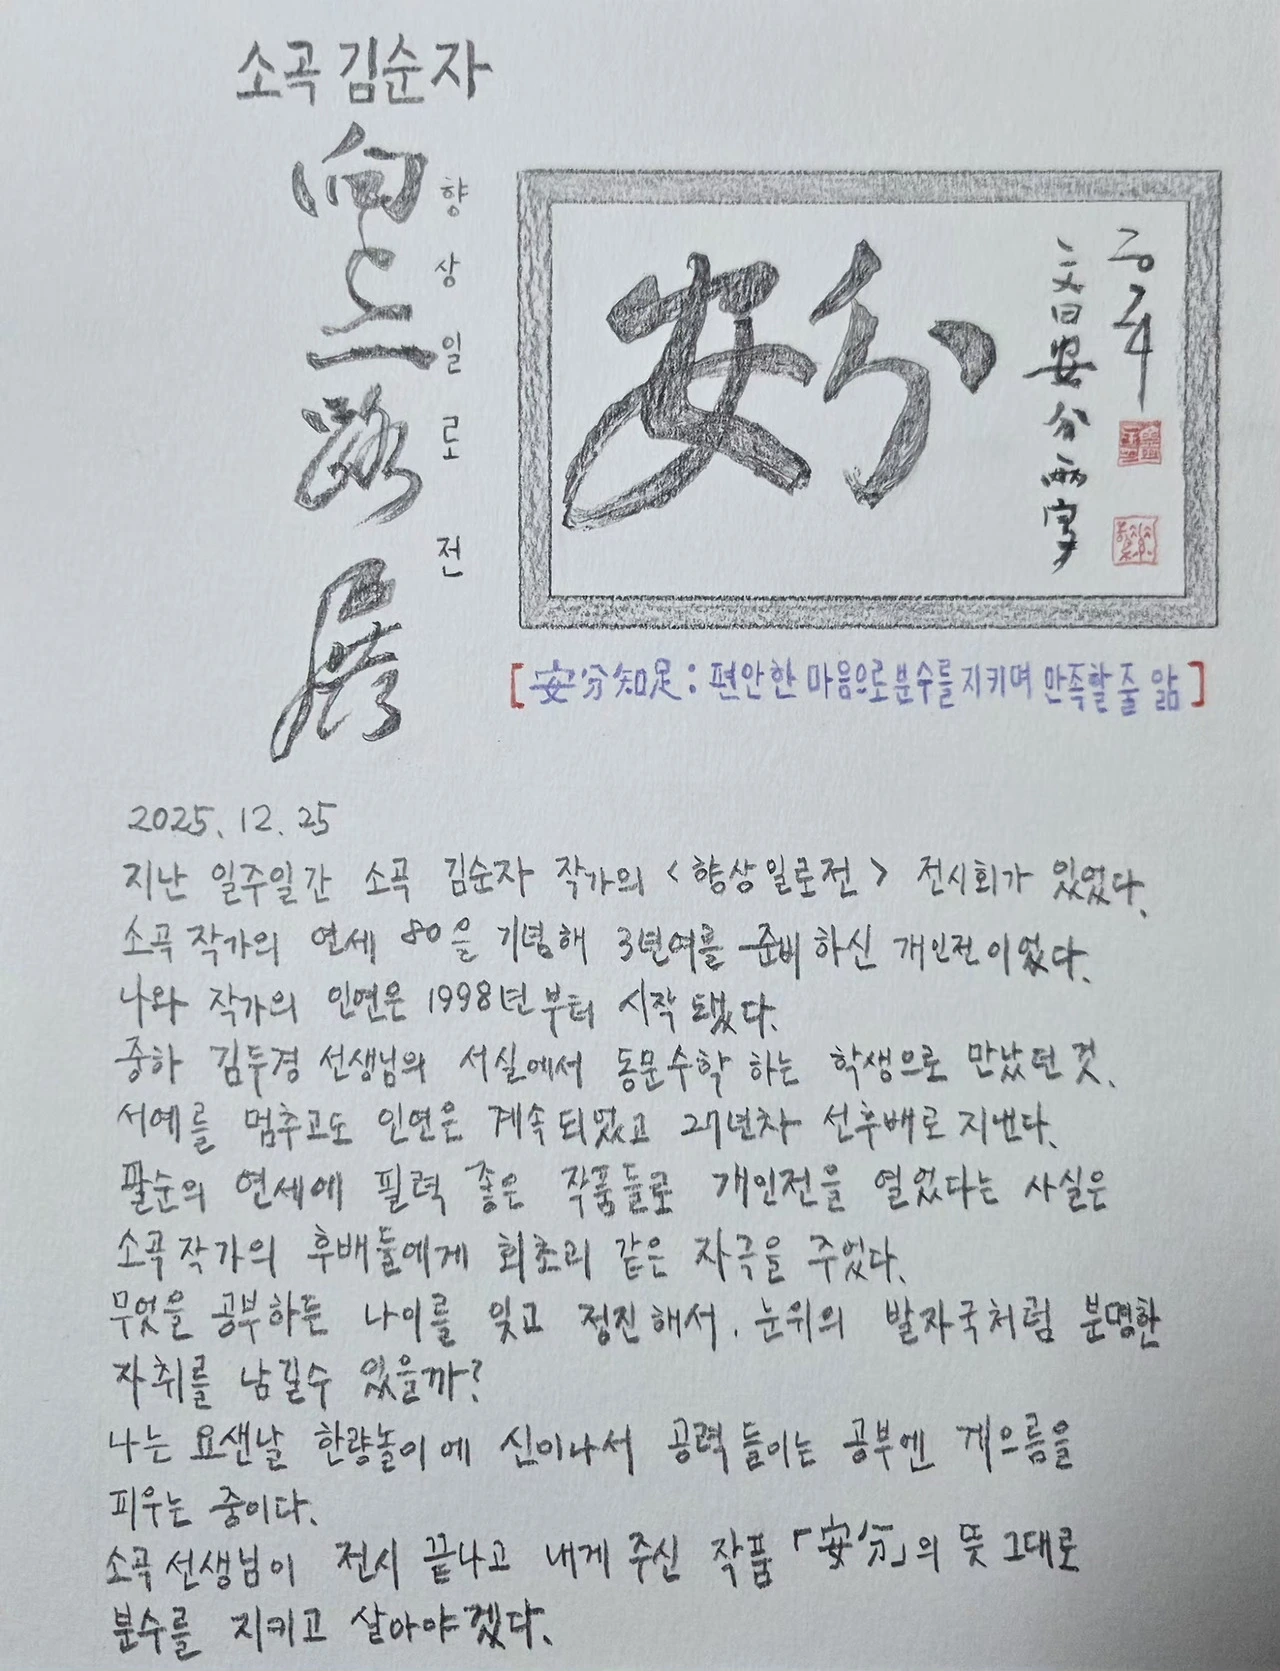 소곡 김순자
向上一路展
향상일로전
安分
소곡
文曰安分兩字
[安分知足: 편안한 마음으로 분수를 지키며 만족할 줄 앎]
2025. 12. 25
지난 일주일간 소곡 김순자 작가의 <향상일로전> 전시회가 있었다.
소곡 작가의 연세 80을 기념해 3년여를 준비하신 개인전이었다.
나와 작가의 인연은 1998년부터 시작됐다.
중하 김두경 선생님의 서실에서 동문수학 하는 학생으로 만났던 것.
서예를 멈추고도 인연은 계속되었고 27년차 선후배로 지낸다.
팔순의 연세에 필력 좋은 작품들로 개인전을 열었다는 사실은
소곡 작가의 후배들에게 회초리 같은 자극을 주었다.
무엇을 공부하든 나이를 잊고 정진해서, 눈위의 발자국처럼 분명한
자취를 남길수 있을까?
나는 요샌날 한량놀이에 신이나서 공력들이는 공부엔 게으름을
피우는 중이다.
소곡선생님이 전시 끝나고 내게 주신 작품 「安分」의 뜻 그대로
분수를 지키고 살아야겠다.